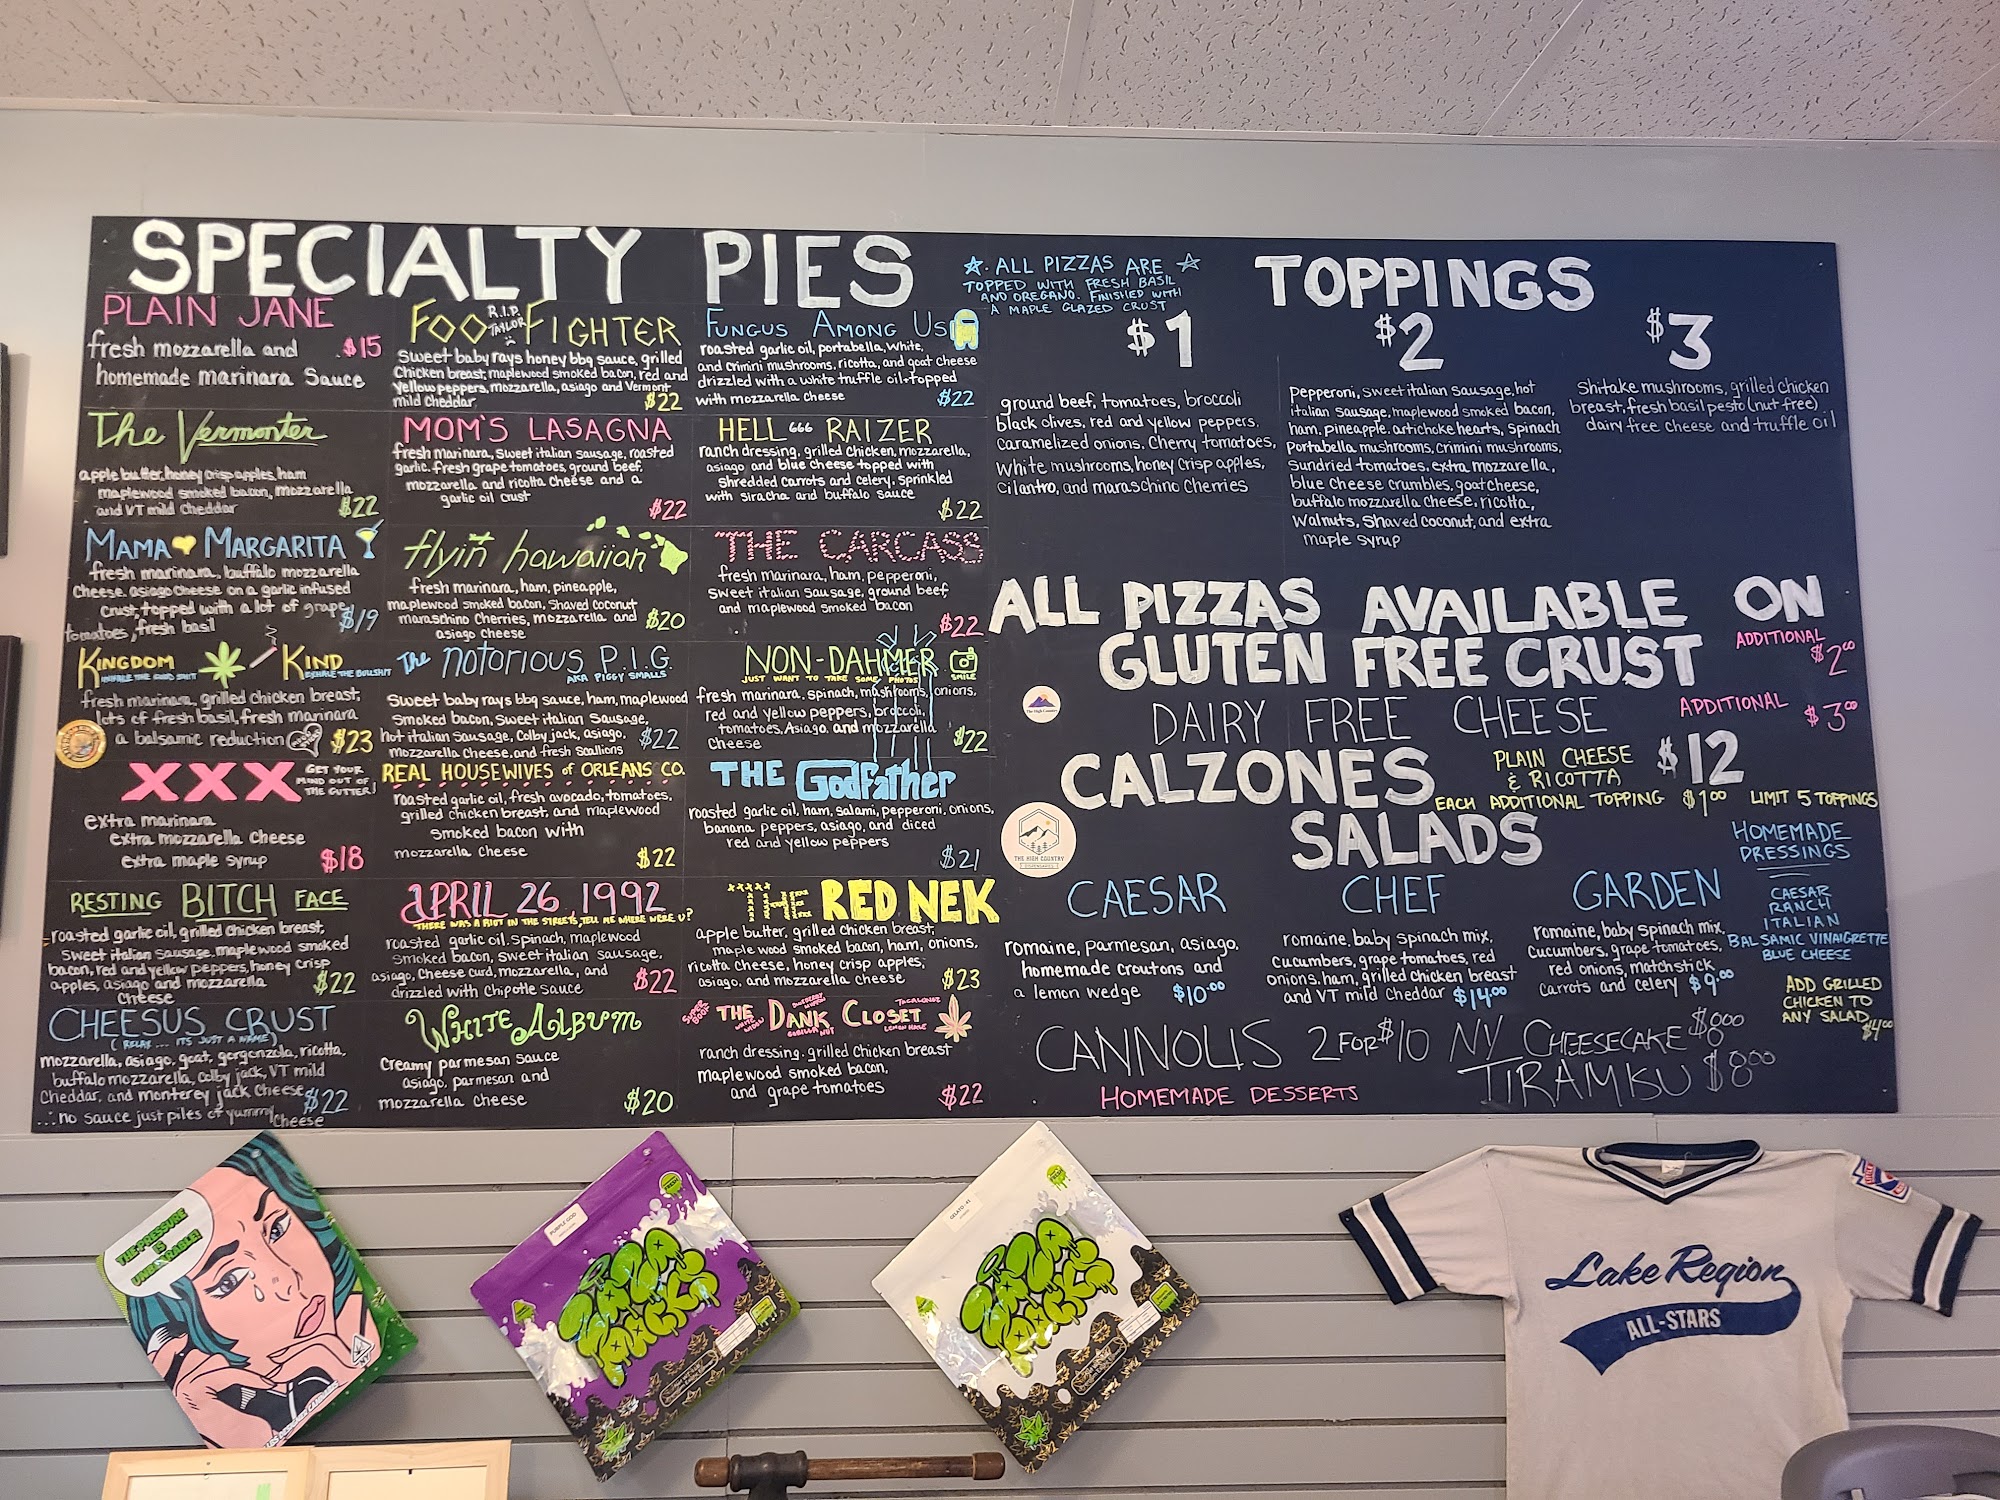 SPECIALTY PIES
PLAIN JANE
fresh mozzarella and $15
homemade marinara Sauce
The Vermonter
apple butter, honey crisp apples, ham
maplewood smoked bacon, mozzarella
and VT mild cheddar $22
MAMA MARGARITA
fresh marinara, buffalo mozzarella
cheese, asiago cheese on a garlic infused
crust, topped with a lot of grape
tomatoes, fresh basil $19
KINGDOM KIND
INHALE THE GOOD SHIT EXHALE THE BULLSHIT
fresh marinara, grilled chicken breast,
lots of fresh basil, fresh marinara
a balsamic reduction $23
XXX
GET YOUR
MIND OUT OF
THE GUTTER!
extra marinara
extra mozzarella cheese
extra maple syrup $18
RESTING BITCH FACE
roasted garlic oil, grilled chicken breast,
sweet italian sausage, maplewood smoked
bacon, red and yellow peppers, honey crisp
apples, asiago and mozzarella
cheese $22
CHEESUS CRUST
(RELAX... ITS JUST A NAME)
mozzarella, asiago, goat, gorgonzola, ricotta,
buffalo mozzarella, Colby jack, VT mild
Cheddar, and monterey jack cheese
...no sauce just piles of yummy cheese $22
FOO FIGHTER
R.I.P.
TAYLOR
Sweet baby rays honey bbq sauce, grilled
Chicken breast, maplewood smoked bacon, red and
Yellow peppers, mozzarella, asiago and Vermont
mild cheddar $22
MOM'S LASAGNA
fresh marinara, sweet italian sausage, roasted
garlic, fresh grape tomatoes, ground beef,
mozzarella and ricotta cheese and a
garlic oil crust $22
flyin hawaiian
fresh marinara, ham, pineapple,
maplewood smoked bacon, Shaved coconut
maraschino Cherries, mozzarella and
asiago cheese $20
The notorious P.I.G.
AKA PIGGY SMALLS
Sweet baby rays bbq sauce, ham, maplewood
Smoked bacon, Sweet italian Sausage,
hot italian Sausage, Colby jack, asiago,
mozzarella Cheese, and fresh scallions $22
REAL HOUSEWIVES of ORLEANS CO.
roasted garlic oil, fresh avocado, tomatoes,
grilled chicken breast, and maplewood
Smoked bacon with
mozzarella cheese $22
APRIL 26, 1992
THERE WAS A RIOT IN THE STREETS, TELL ME WHERE WERE U?
roasted garlic oil, spinach, maplewood
smoked bacon, sweet italian sausage,
asiago, Cheese curd, mozzarella, and
drizzled with Chipotle sauce $22
White Album
Creamy parmesan sauce
asiago, parmesan and
mozzarella cheese $20
FUNGUS AMONG US
roasted garlic oil, portabella, white,
and crimini mushrooms, ricotta, and goat cheese
drizzled with a white truffle oil + topped
with mozzarella cheese $22
HELL 666 RAIZER
ranch dressing, grilled chicken, mozzarella,
asiago and blue cheese topped with
Shredded carrots and celery, sprinkled
with siracha and buffalo sauce $22
THE CARCASS
fresh marinara, ham, pepperoni,
sweet italian sausage, ground beef
and maplewood smoked bacon $22
NON-DAHMER
JUST WANT TO TAKE SOME PHOTOS SMILE
fresh marinara, spinach, mushrooms, onions,
red and yellow peppers, broccoli,
tomatoes, Asiago, and mozzarella
Cheese $22
THE Godfather
roasted garlic oil, ham, salami, pepperoni, onions,
banana peppers, asiago, and diced
red and yellow peppers $21
THE RED NEK
apple butter, grilled chicken breast,
maple wood smoked bacon, ham, onions,
ricotta cheese, honey crisp apples,
asiago, and mozzarella cheese $23
THE DANK CLOSET
ranch dressing, grilled Chicken breast
maplewood smoked bacon,
and grape tomatoes $22
ALL PIZZAS ARE
TOPPED WITH FRESH BASIL
AND OREGANO. FINISHED WITH
A MAPLE GLAZED CRUST
TOPPINGS
$1
ground beef, tomatoes, broccoli
black olives, red and yellow peppers,
Caramelized onions, Cherry tomatoes,
White mushrooms, honey Crisp apples,
Cilantro, and maraschino Cherries
$2
Pepperoni, sweet italian sausage, hot
italian Sausage, maplewood smoked bacon,
ham, pineapple, artichoke hearts, spinach
Portabella mushrooms, Crimini mushrooms,
Sundried tomatoes, extra mozzarella,
blue Cheese crumbles, goat cheese,
buffalo mozzarella cheese, ricotta,
Walnuts, Shaved coconut, and extra
maple syrup
$3
Shitake mushrooms, grilled chicken
breast, fresh basil pesto (nut free)
dairy free cheese and truffle oil
ALL PIZZAS AVAILABLE ON
GLUTEN FREE CRUST
ADDITIONAL
$2.00
DAIRY FREE CHEESE
ADDITIONAL $3.00
CALZONES
PLAIN CHEESE
& RICOTTA $12
EACH ADDITIONAL TOPPING $1.00 LIMIT 5 TOPPINGS
SALADS
CAESAR
romaine, parmesan, asiago,
homemade croutons and
a lemon wedge $10.00
CHEF
romaine, baby spinach mix,
cucumbers, grape tomatoes, red
onions, ham, grilled chicken breast
and VT mild cheddar $14.00
GARDEN
romaine, baby spinach mix,
Cucumbers, grape tomatoes,
red onions, matchstick
carrots and celery $9.00
HOMEMADE
DRESSINGS
CAESAR
RANCH
ITALIAN
BALSAMIC VINAIGRETTE
BLUE CHEESE
ADD GRILLED
CHICKEN TO
ANY SALAD
$4.00
CANNOLIS 2 FOR $10
NY CHEESECAKE $8.00
TIRAMISU $8.00
HOMEMADE DESSERTS
THE HIGH COUNTRY
THE PRESSURE
IS
UNBEARABLE!
PURPLE GOD
GELATO-41
Lake Region
ALL-STARS